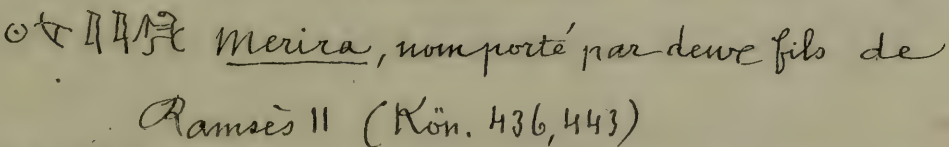 𓇳𓌻𓇌𓀀 Merira, nom porté par deux fils de
Ramsès II (Kön. 436, 443)